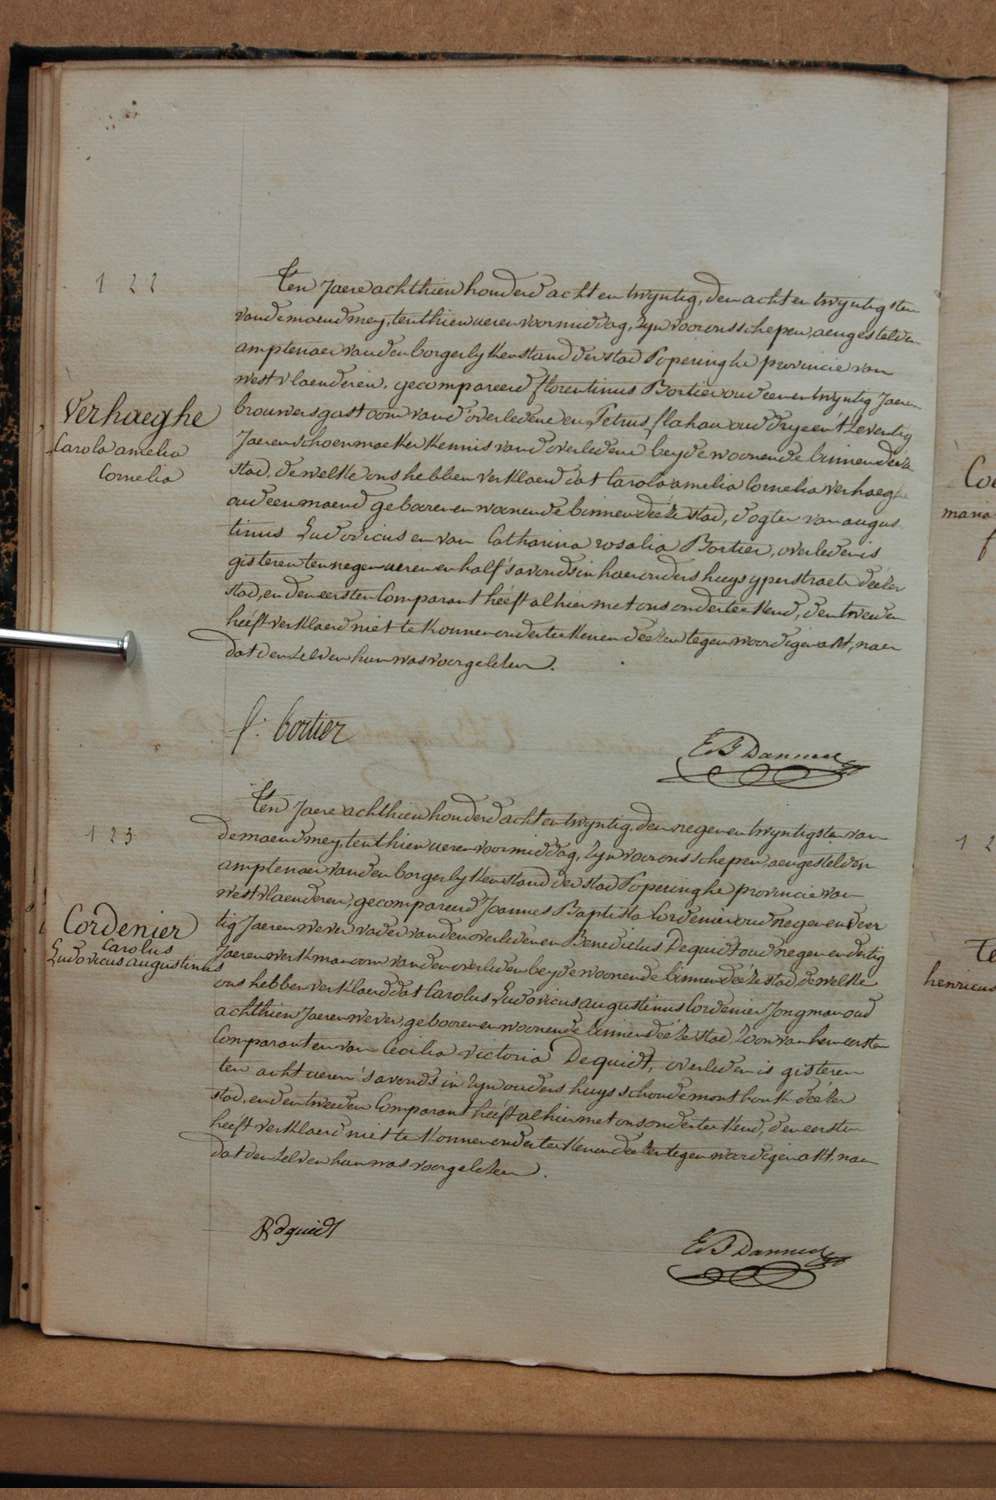 122
Verhaeghe
Carola amelia
Cornelia
Ten Jaere achthien honderd acht en twyntig, den acht en twyntigsten
van de maend mey, ten thien ueren voormiddag, Zyn voor ons schepen, aengestelden
amptenaer van den borgerlyken stand der stad Poperinghe provincie van
westvlaenderen, gecompareerd florentinus Bortier oud een en twyntig Jaeren
brouwersgast oom van d'overledene en Petrus flahau oud dry en t'seventig
Jaeren schoenmaeker kennis van d'overledene beyde woonende binnen deéze
stad, dewelke ons hebben verklaerd dat Carola amelia Cornelia verhaeghe
oud een maend gebooren en woonende binnen deéze stad, dogter van augus-
tinus Ludovicus en van Catharina rosalia Bortier, overleden is
gisteren ten negen ueren en half s'avonds in haer ouders huys yperstraete deézer
stad, en den eersten Comparant heéft alhier met ons onderteekend, den tweeden
heéft verklaerd niet te konnen onderteekenen deézen tegenwoordigen akt, naer
dat den zelven hun was voorgelezen.
f. bortier
123
Cordenier
Carolus
Ludovicus augustinus
Ten Jaere achthien honderd acht en twyntig, den negen en twyntigsten van
de maend mey, ten thien ueren voormiddag, Zyn voor ons schepen, aengestelden
amptenaer van den borgerlyken stand der stad Poperinghe provincie van
westvlaenderen, gecompareerd Joannes Baptista Cordenier oud negen en veer-
tig Jaeren wever vader van den overleden en Benedictus Dequidt oud negen en dertig
Jaeren werkman oom van den overleden beyde woonende binnen deéze stad, dewelke
ons hebben verklaerd dat Carolus Ludovicus augustinus Cordenier Jongman oud
achthien Jaeren wever, gebooren en woonende binnen deéze stad, Zoon van hem eersten
Comparant en van Cecilia victoria Dequidt, overleden is gisteren
ten acht ueren s'avonds in Zyn ouders huys schoudemonthoek deézer
stad, en den tweeden Comparant heéft alhier met ons onderteekend, den eersten
heéft verklaerd niet te konnen onderteekenen deézen tegenwoordigen akt, naer
dat den zelven hun was voorgelezen.
B dquidt
12
mana
Te
henricus